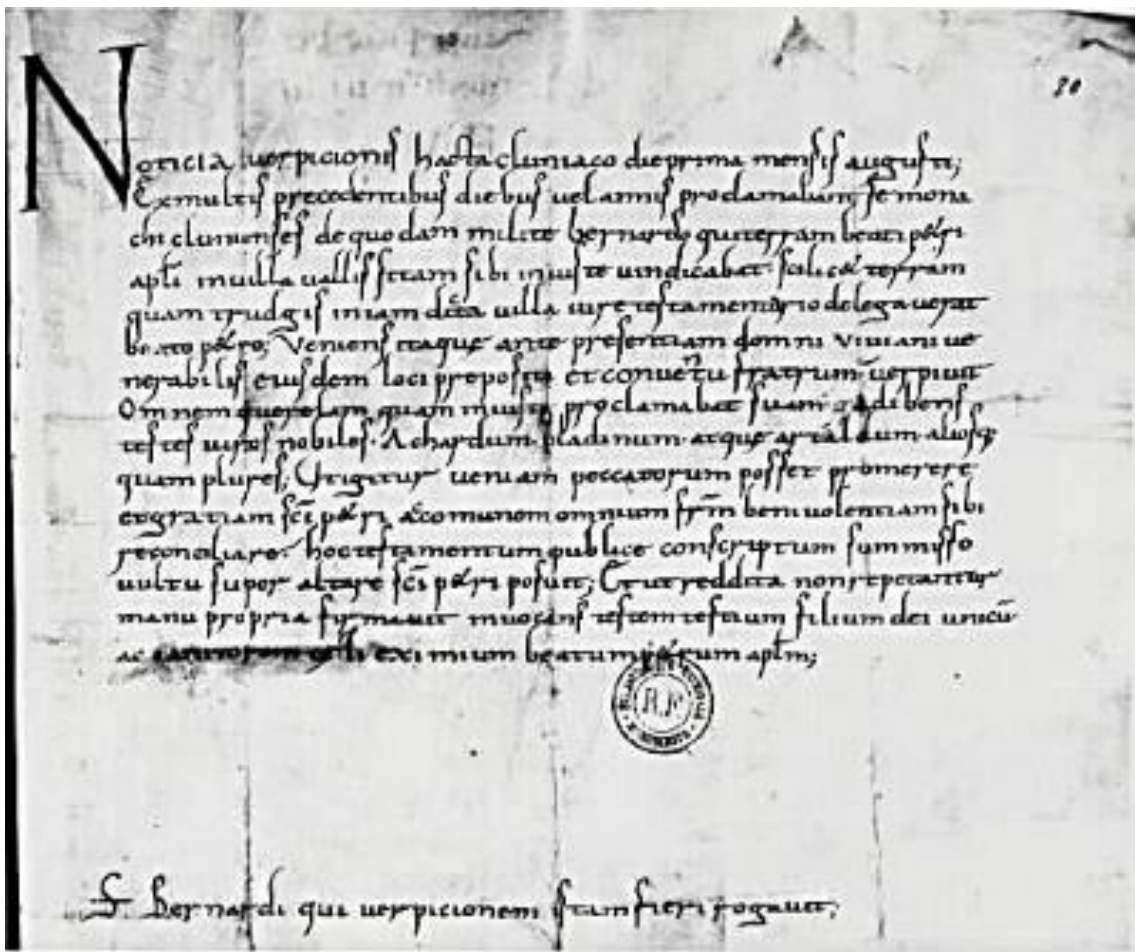 20
Noticia verpicionis hacta cluniaco die prima mensis augusti;
Ex multis precedentibus diebus vel annis proclamabant se mona
chi clunienses de quodam milite bernardo qui terram beati petri
apłi in villa vallis sitam sibi iniuste vindicabat. scilicet terram
quam trudgis in iam dicta villa iure testamentario delegaverat
beato petro; Veniens itaque ante presentiam domni viviani ve
nerabilis eiusdem loci prepositi et conventu fratrum verpivit
Omnem querelam quam iniuste proclamabat suam tradibens
testes viros nobiles. Achardum. bladinum. atque arialdum. aliosq;
quam plures; Ut igitur veniam peccatorum posset promerere
et gratiam sci petri et comunem omnium frm benivolentiam sibi
reconciliare. hoc testamentum publice conscriptum summisso
vultu super altare sci petri posuit; Et ut reddita non repetantur
manu propria firmavit invocans testem testium filium dei unicū
ac eximium beatum petrum aplm;
R.F.
S. Bernardi qui verpicionem istam fieri rogavit;